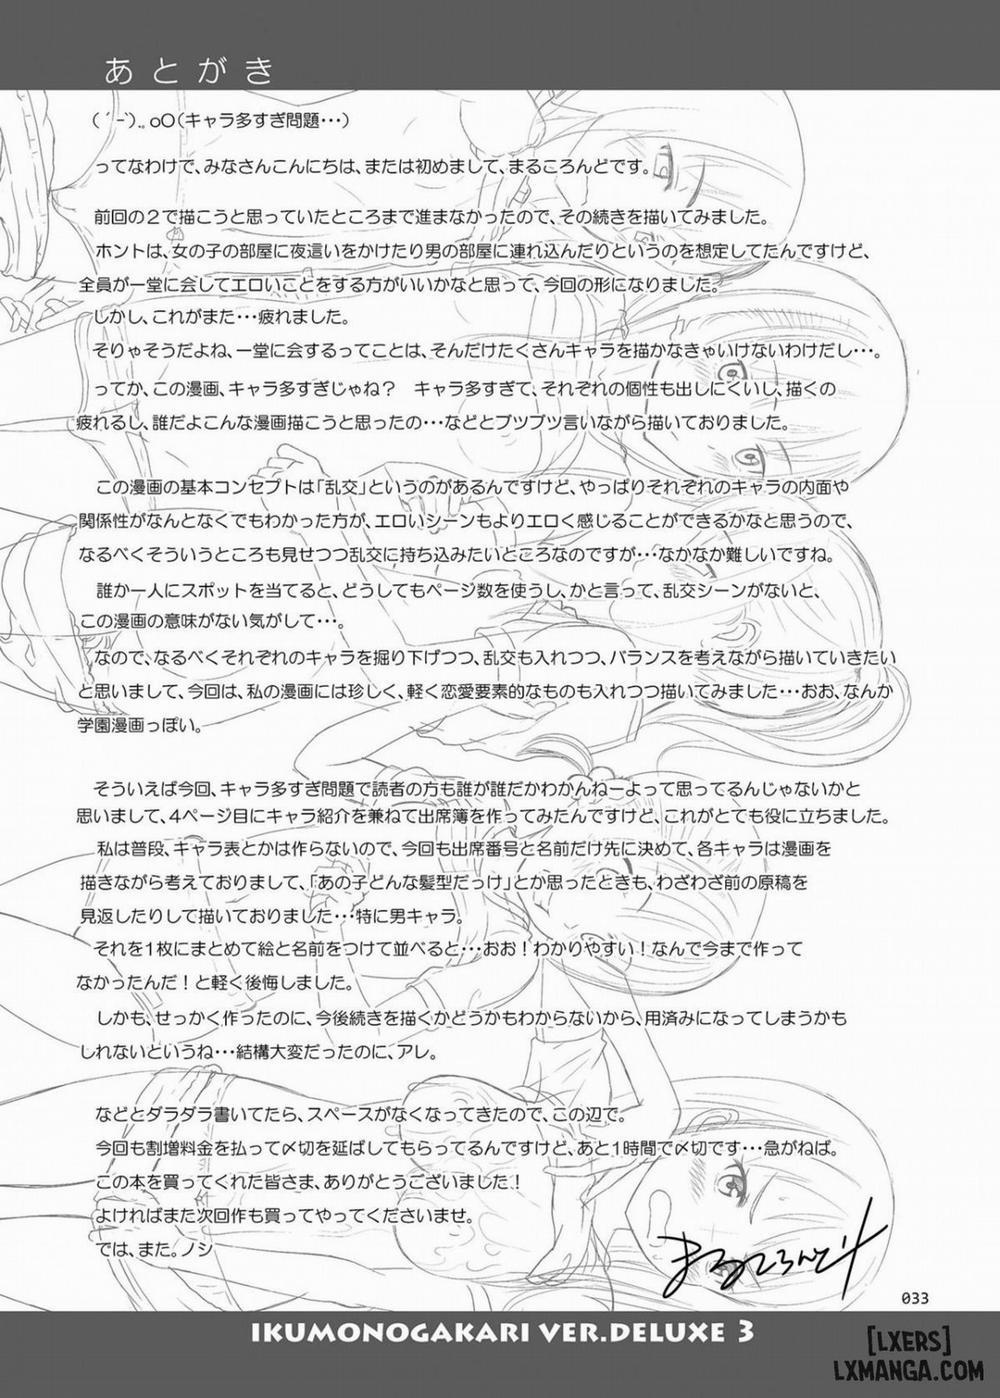 あとがき
（´-`）.｡oO（キャラ多すぎ問題･･･）
ってなわけで、みなさんこんにちは、または初めまして、まるころんどです。
前回の２で描こうと思っていたところまで進まなかったので、その続きを描いてみました。
ホントは、女の子の部屋に夜這いをかけたり男の部屋に連れ込んだりというのを想定してたんですけど、
全員が一堂に会してエロいことをする方がいいかなと思って、今回の形になりました。
しかし、これがまた･･･疲れました。
そりゃそうだよね、一堂に会するってことは、そんだけたくさんキャラを描かなきゃいけないわけだし･･･。
ってか、この漫画、キャラ多すぎじゃね？　キャラ多すぎて、それぞれの個性も出しにくいし、描くの
疲れるし、誰だよこんな漫画描こうと思ったの･･･などとブツブツ言いながら描いておりました。
この漫画の基本コンセプトは「乱交」というのがあるんですけど、やっぱりそれぞれのキャラの内面や
関係性がなんとなくでもわかった方が、エロいシーンもよりエロく感じることができるかなと思うので、
なるべくそういうところも見せつつ乱交に持ち込みたいところなのですが･･･なかなか難しいですね。
誰か一人にスポットを当てると、どうしてもページ数を使うし、かと言って、乱交シーンがないと、
この漫画の意味がない気がして･･･。
なので、なるべくそれぞれのキャラを掘り下げつつ、乱交も入れつつ、バランスを考えながら描いていきたい
と思いまして、今回は、私の漫画には珍しく、軽く恋愛要素的なものも入れつつ描いてみました･･･おお、なんか
学園漫画っぽい。
そういえば今回、キャラ多すぎ問題で読者の方も誰が誰だかわかんねーよって思ってるんじゃないかと
思いまして、4ページ目にキャラ紹介を兼ねて出席簿を作ってみたんですけど、これがとても役に立ちました。
私は普段、キャラ表とかは作らないので、今回も出席番号と名前だけ先に決めて、各キャラは漫画を
描きながら考えておりまして、「あの子どんな髪型だっけ」とか思ったときも、わざわざ前の原稿を
見返したりして描いておりました･･･特に男キャラ。
それを１枚にまとめて絵と名前をつけて並べると･･･おお！わかりやすい！なんで今まで作って
なかったんだ！と軽く後悔しました。
しかも、せっかく作ったのに、今後続きを描くかどうかもわからないから、用済みになってしまうかも
しれないというね･･･結構大変だったのに、アレ。
などとダラダラ書いてたら、スペースがなくなってきたので、この辺で。
今回も割増料金を払って〆切を延ばしてもらってるんですけど、あと１時間で〆切です･･･急がねば。
この本を買ってくれた皆さま、ありがとうございました！
よければまた次回作も買ってやってくださいませ。
では、また。ノシ
まるころんど
033
IKUMONOGAKARI VER.DELUXE 3
[LXERS]
LXMANGA.COM